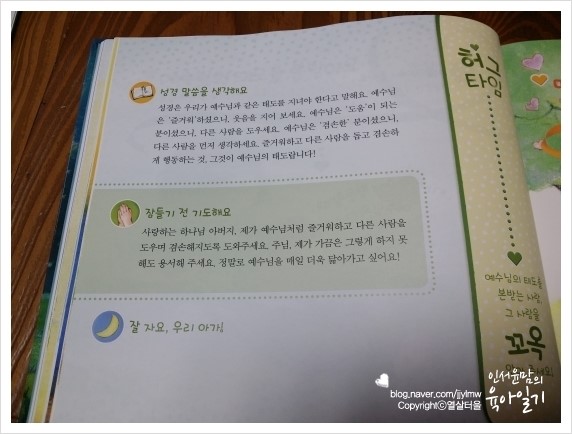 성경 말씀을 생각해요
성경은 우리가 예수님과 같은 태도를 지녀야 한다고 말해요. 예수님
은 '즐거워'하셨으니, 웃음을 지어 보세요. 예수님은 '도움'이 되는
분이셨으니, 다른 사람을 도우세요. 예수님은 '겸손한' 분이셨으니,
다른 사람을 먼저 생각하세요. 즐거워하고 다른 사람을 돕고 겸손하
게 행동하는 것, 그것이 예수님의 태도랍니다!
잠들기 전 기도해요
사랑하는 하나님 아버지, 제가 예수님처럼 즐거워하고 다른 사람을
도우며 겸손해지도록 도와주세요. 주님, 제가 가끔은 그렇게 하지 못
해도 용서해 주세요. 정말로 예수님을 매일 더욱 닮아가고 싶어요!
잘 자요, 우리 아가!
허그
타임
예수님의 태도를
본받는 사람,
그 사람을
꼬옥
인서윤맘의
육아일기
blog.naver.com/jjylmw
Copyrightⓒ열살터울